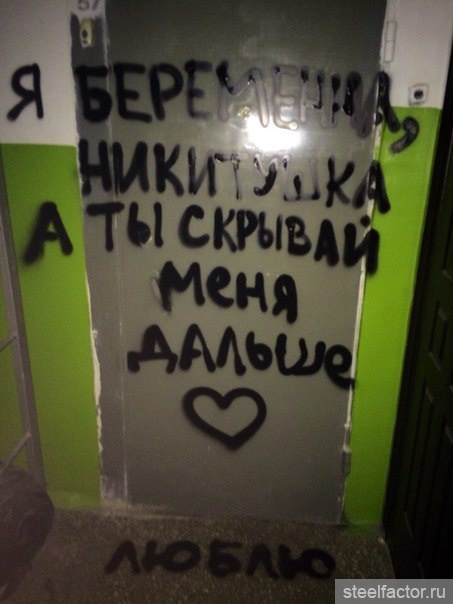 57
Я БЕРЕМЕННА,
НИКИТУШКА
А ТЫ СКРЫВАЙ
МЕНЯ
ДАЛЬШЕ
ЛЮБЛЮ
steelfactor.ru